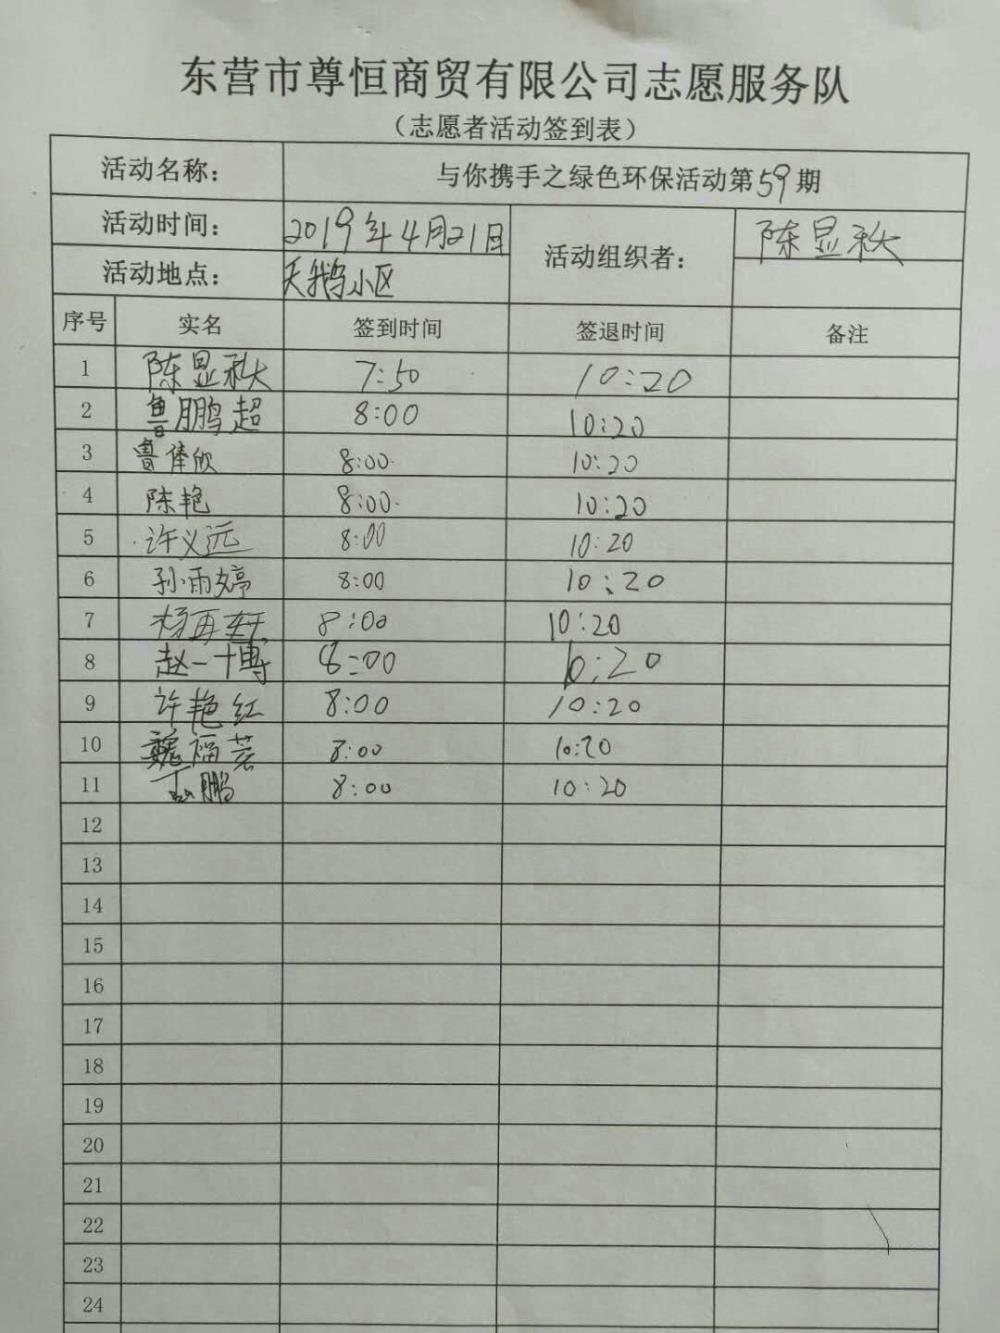 东营市尊恒商贸有限公司志愿服务队
（志愿者活动签到表）
活动名称： 与你携手之绿色环保活动第59期
活动时间： 2019年4月21日 活动组织者： 陈显秋
活动地点： 天鹅小区
序号 实名 签到时间 签退时间 备注
1 陈显秋 7:50 10:20
2 鲁鹏超 8:00 10:20
3 鲁俸欣 8:00 10:20
4 陈艳 8:00 10:20
5 许义远 8:00 10:20
6 孙雨婷 8:00 10:20
7 杨再 8:00 10:20
8 赵一博 8:00 10:20
9 许艳红 8:00 10:20
10 魏福 8:00 10:20
11 鹏 8:00 10:20
12
13
14
15
16
17
18
19
20
21
22
23
24